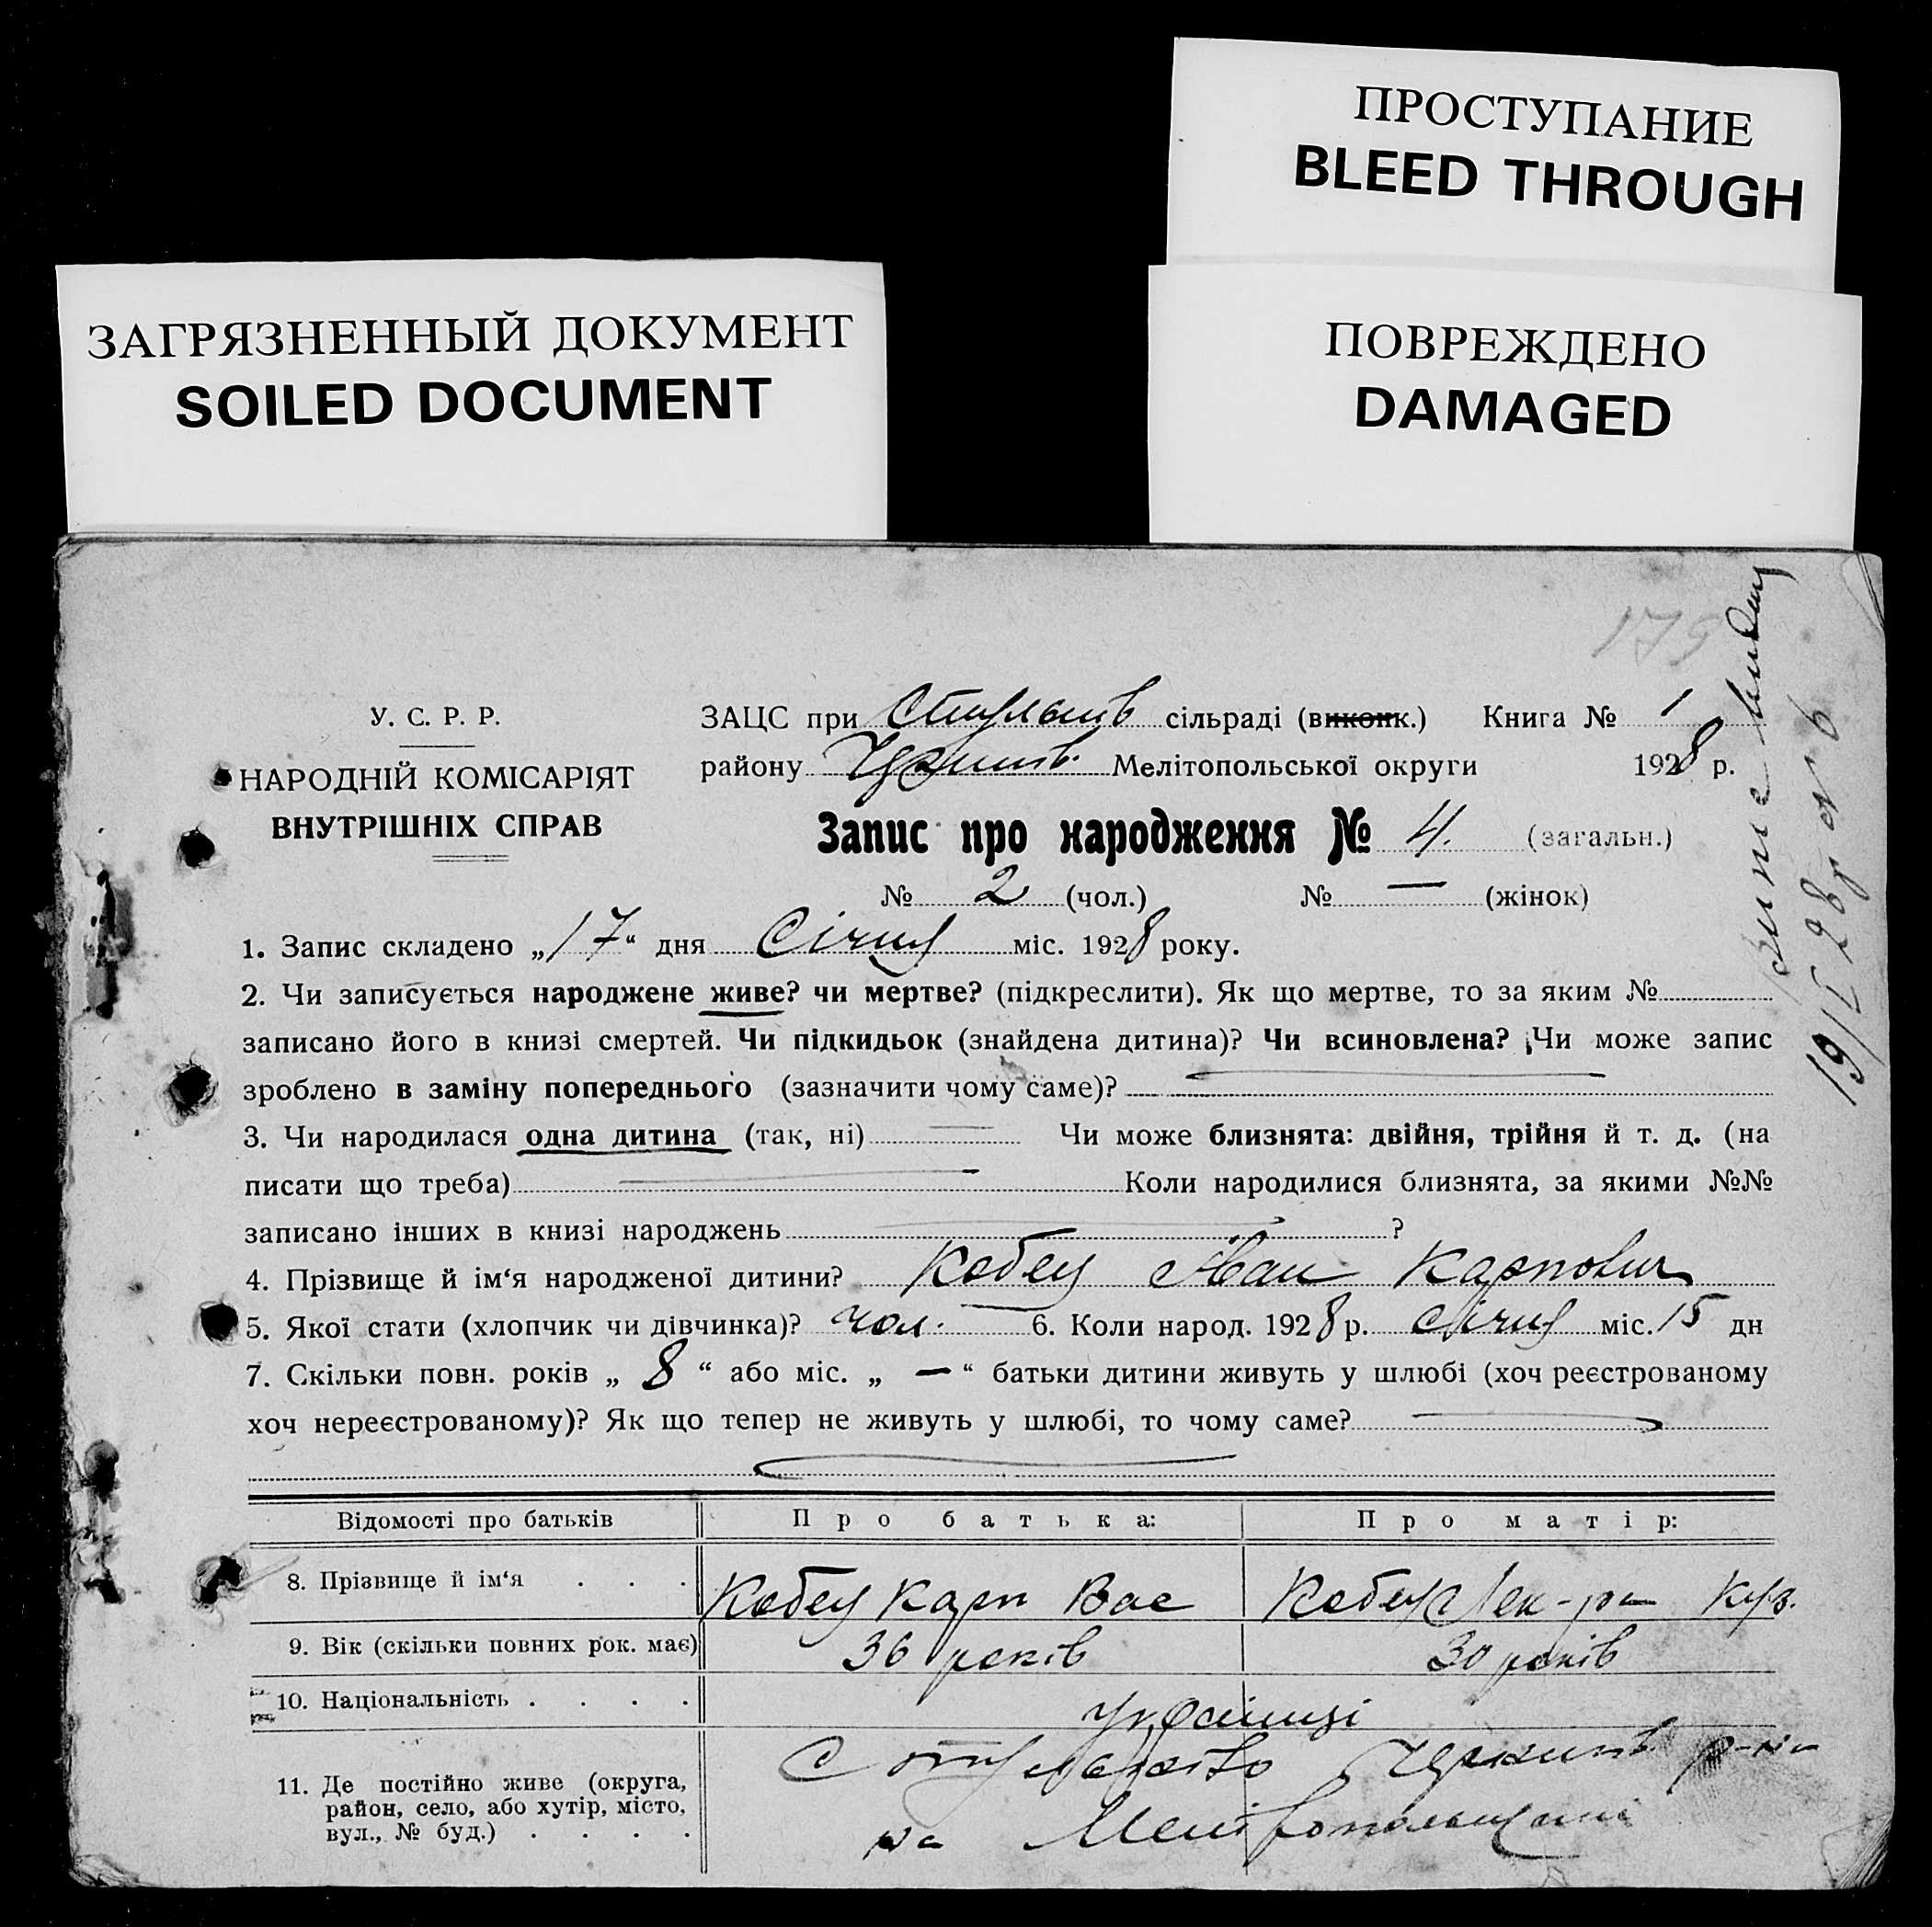 ПРОСТУПАНИЕ
BLEED THROUGH
ЗАГРЯЗНЕННЫЙ ДОКУМЕНТ
SOILED DOCUMENT
ПОВРЕЖДЕНО
DAMAGED
179
У. С. Р. Р.
НАРОДНІЙ КОМІСАРІЯТ
ВНУТРІШНІХ СПРАВ
ЗАЦС при сільраді (виконк.) Книга № 1
району Мелітопольської округи 1928 р.
Запис про народження № 4. (загальн.)
№ 2 (чол.) № — (жінок)
1. Запис складено „17“ дня Січня міс. 1928 року.
2. Чи записується народжене живе? чи мертве? (підкреслити). Як що мертве, то за яким №
записано його в книзі смертей. Чи підкидьок (знайдена дитина)? Чи всиновлена? Чи може запис
зроблено в заміну попереднього (зазначити чому саме)?
3. Чи народилася одна дитина (так, ні) — Чи може близнята: двійня, трійня й т. д. (на
писати що треба) — Коли народилися близнята, за якими №№
записано інших в книзі народжень — ?
4. Прізвище й ім‘я народженої дитини? Кобец Іван Карпович
5. Якої стати (хлопчик чи дівчинка)? чол. 6. Коли народ. 1928 р. січня міс. 15 дн
7. Скільки повн. років „ 8 “ або міс. „ — “ батьки дитини живуть у шлюбі (хоч реєстрованому
хоч нереєстрованому)? Як що тепер не живуть у шлюбі, то чому саме? —
Відомості про батьків Про батька: Про матір:
8. Прізвище й ім‘я . . . Кобец Карп Вас Кобец
9. Вік (скільки повних рок. має) 36 років 30 років
10. Національність . . . . Українці
11. Де постійно живе (округа,
район, село, або хутір, місто,
вул., № буд.) . . . .
р-на
на Мелітопольщині
19/I 28 р.